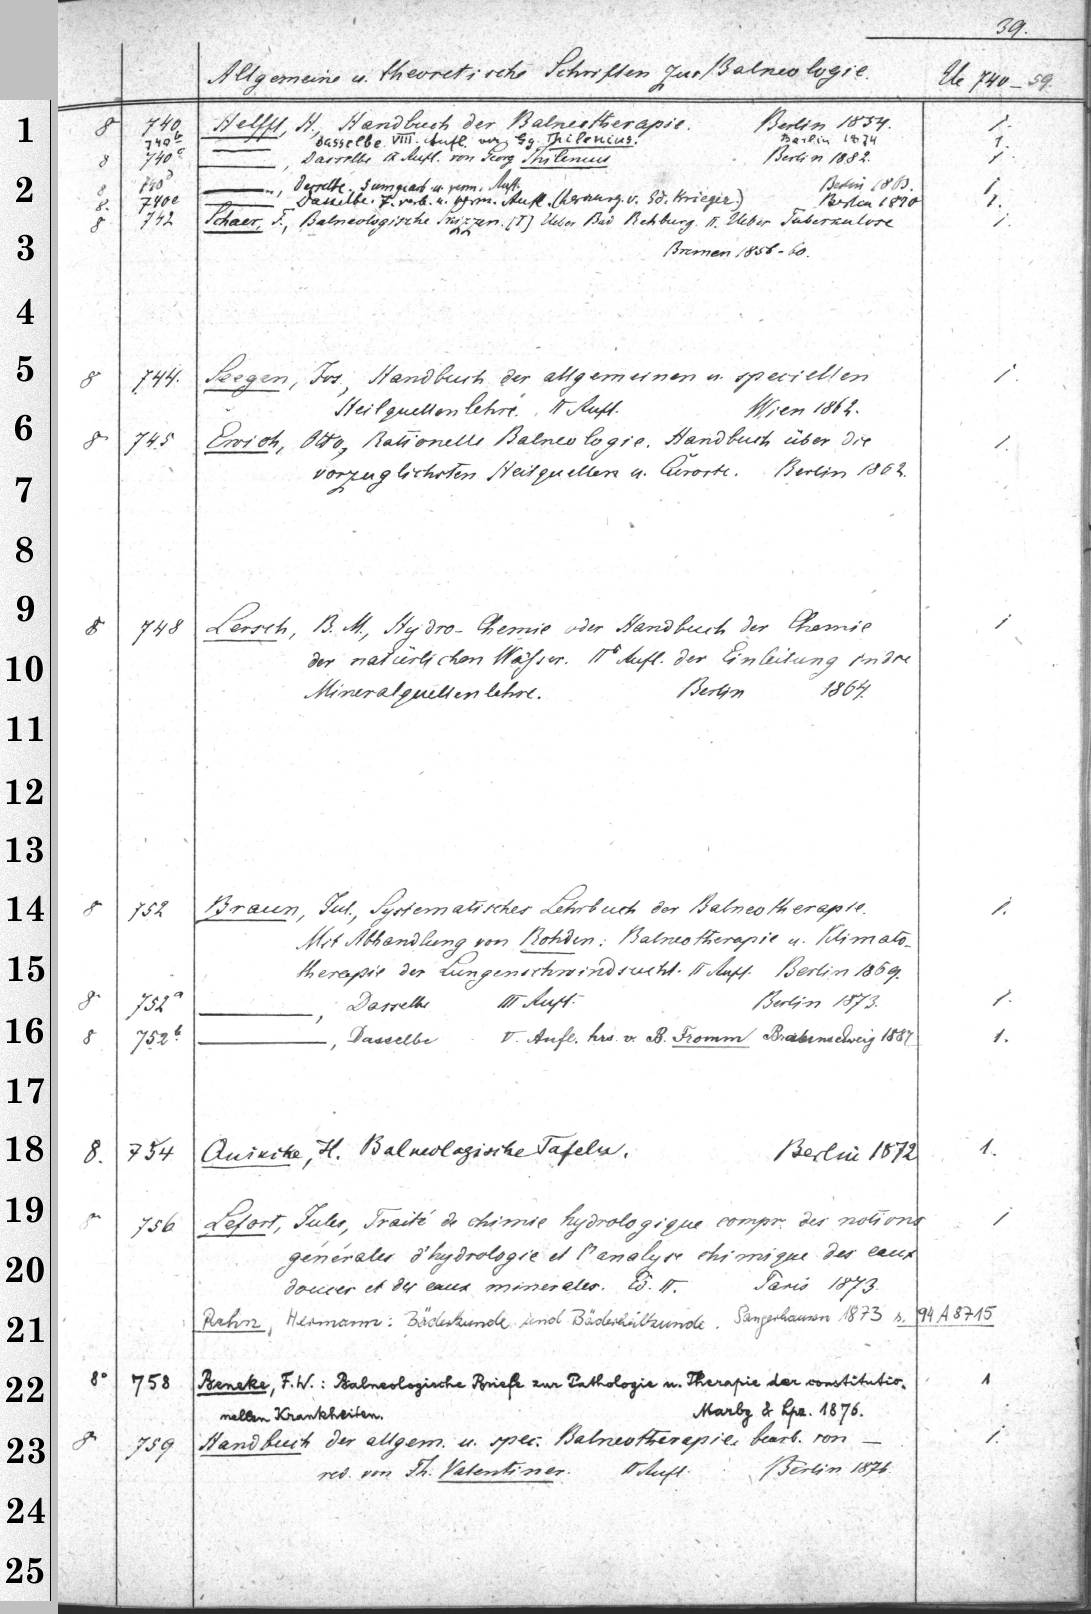 39.
Allgemeine u. theoretische Schriften zur Balneologie. Ue 740-59.
1 8 740 Helfft, H., Handbuch der Balneotherapie. Berlin 1854. 1.
740b Dasselbe VIII. Aufl. von Gg. Thilenius. Berlin 1874 1.
8 740c ———, Dasselbe IX Aufl. von Georg Thilenius Berlin 1882. 1
2 8 740d ———, Dasselbe. 5. umgearb. u. verm. Aufl. Berlin 1863. 1.
8. 740e ———, Dasselbe. 7. verb. u. verm. Aufl. (herausg. v. Ed. Krieger.) Berlin 1870 1.
8 742 Schaer, F., Balneologische Skizzen. [I] Ueber Bad Rehburg. II. Ueber Tuberkulose 1.
3 Bremen 1856-60.
4
5 8 744. Seegen, Jos., Handbuch der allgemeinen u. speciellen 1.
Heilquellenlehre. II Aufl. Wien 1862.
6 8 745 Ewich, Otto, Rationelle Balneologie. Handbuch über die 1.
7 vorzuglichsten Heilquellen u. Curorte. Berlin 1862.
8
9 8 748 Lersch, B. M., Hydro-Chemie oder Handbuch der Chemie 1
10 der natürlichen Wässer. IIe Aufl. der Einleitung in die
Mineralquellenlehre. Berlin 1864.
11
12
13
14 8 752 Braun, Jul., Systematisches Lehrbuch der Balneotherapie. 1.
Mit Abhandlung von Rohden: Balneotherapie u. Klimato-
15 therapie der Lungenschwindsucht. II Aufl. Berlin 1869.
8 752a ———, Dasselbe III Aufl. Berlin 1873. 1.
16 8 752b. ———, Dasselbe V. Aufl. hrs. v. B. Fromm Braunschweig 1887 1.
17
18 8. 754 Quincke, H. Balneologische Tafeln. Berlin 1872 1.
19 8 756 Lefort, Jules, Traité de chimie hydrologique compr. des notions 1
20 générales d'hydrologie et l'analyse chimique des eaux
douces et des eaux minerales. Ed. II. Paris 1873.
21 Rehn, Hermann: Bäderkunde und Bäderheilkunde. Sangerhausen 1873 s. 94 A 8715
22 8° 758 Beneke, F.W.: Balneologische Briefe zur Pathologie u. Therapie der constitutio- 1
nellen Krankheiten. Marbg & Lpz. 1876.
23 8 759 Handbuch der allgem. u. spec. Balneotherapie, bearb. von — 1.
red. von Th. Valentiner. II Aufl. Berlin 1876
24
25